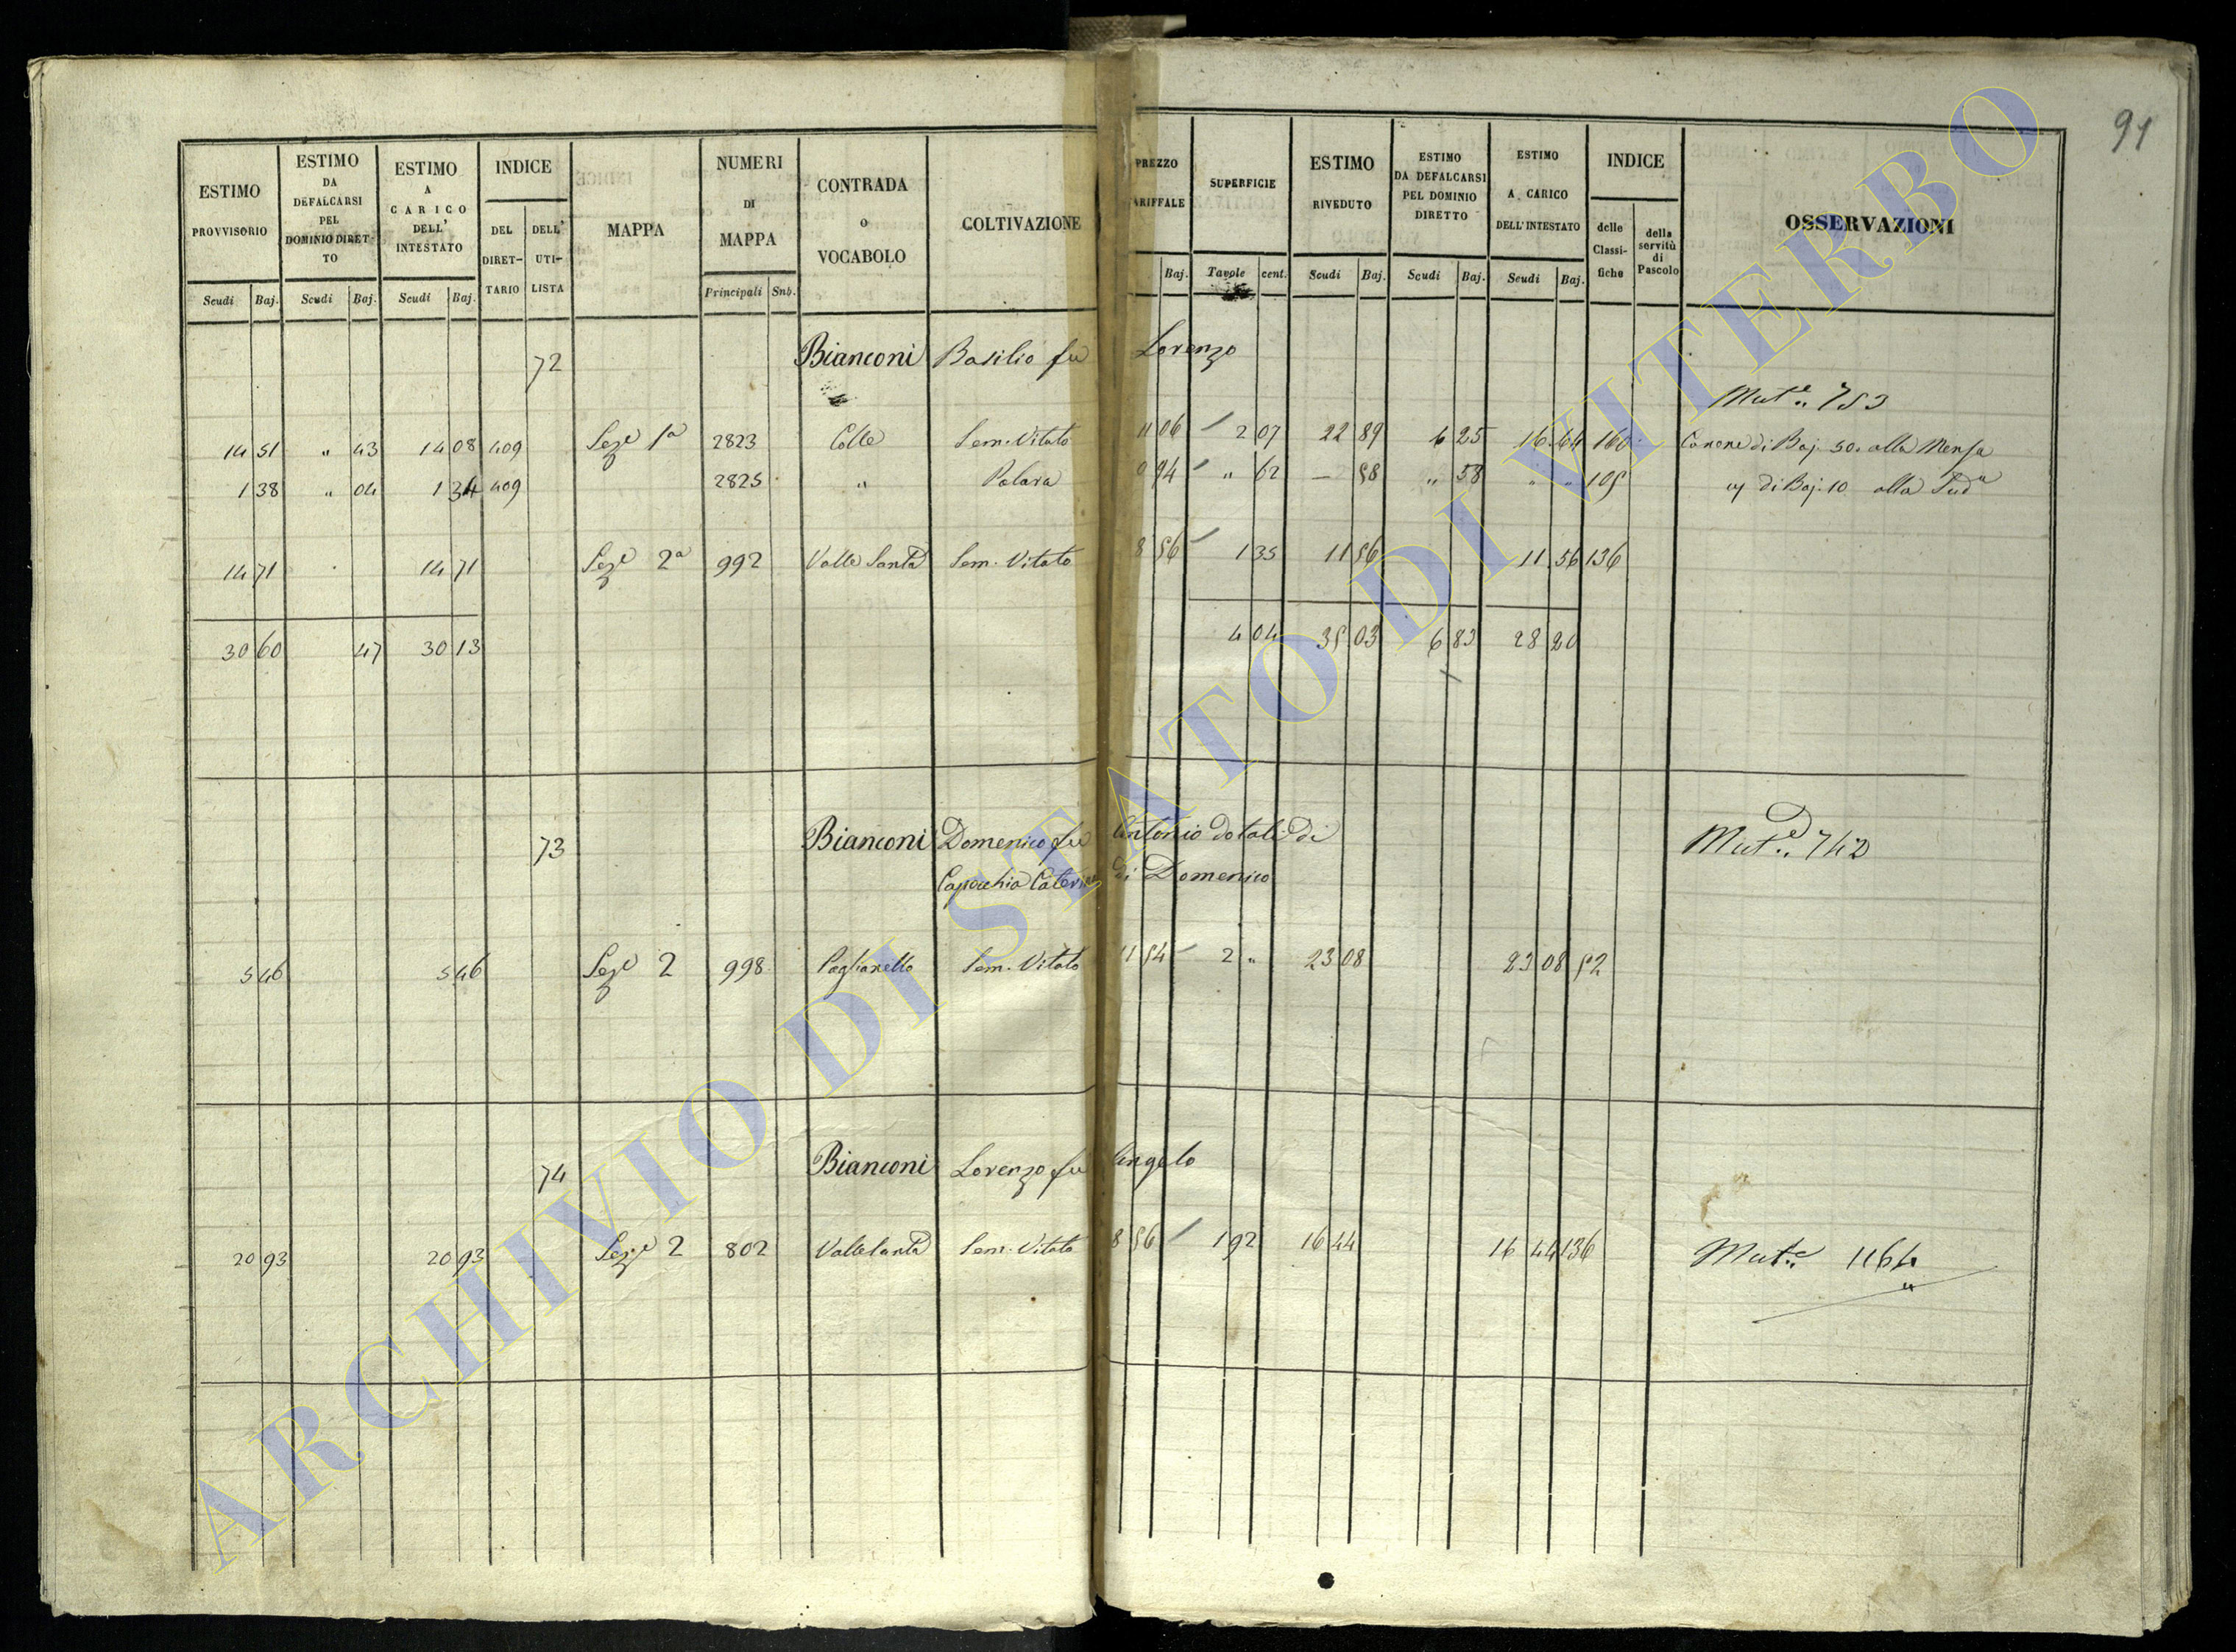 91
ESTIMO PROVVISORIO Scudi Baj.
ESTIMO DA DEFALCARSI PEL DOMINIO DIRET-TO Scudi Baj.
ESTIMO A CARICO DELL' INTESTATO Scudi Baj.
INDICE DEL DIRET-TARIO DELL' UTI-LISTA
MAPPA
NUMERI DI MAPPA Principali Snb.
CONTRADA o VOCABOLO
COLTIVAZIONE
PREZZO ARIFFALE Baj.
SUPERFICIE Tavole cent.
ESTIMO RIVEDUTO Scudi Baj.
ESTIMO DA DEFALCARSI PEL DOMINIO DIRETTO Scudi Baj.
ESTIMO A CARICO DELL'INTESTATO Scudi Baj.
INDICE delle Classi-fiche della servitù di Pascolo
OSSERVAZIONI
72 Bianconi Basilio fu Lorenzo
Mut.e 753
14 51 " 43 14 08 409 Sez.e 1a 2823 Colle Sem. Vitato 11 06 2 07 22 89 6 25 16 64 160 Canone di Baj. 50. alla Mensa
1 38 " 04 1 34 409 2825 " Palara 0 94 " 62 — 58 " 58 " " 105 di Baj. 10 alla Sud.a
14 71 14 71 Sez.e 2a 992 Valle Santa Sem. Vitato 8 56 1 35 11 56 11 56 136
30 60 47 30 13 4 04 35 03 6 83 28 20
73 Bianconi Domenico fu Antonio dotali di
Capecchia Caterina di Domenico
Mut.e 742
5 46 5 46 Sez.e 2 998 Paglianello Sem. Vitato 11 54 2 " 23 08 23 08 52
74 Bianconi Lorenzo fu Angelo
20 93 20 93 Sez.e 2 802 Valle Santa Sem. Vitato 8 56 1 92 16 44 16 44 136 Mut.e 1164
ARCHIVIO DI STATO DI VITERBO